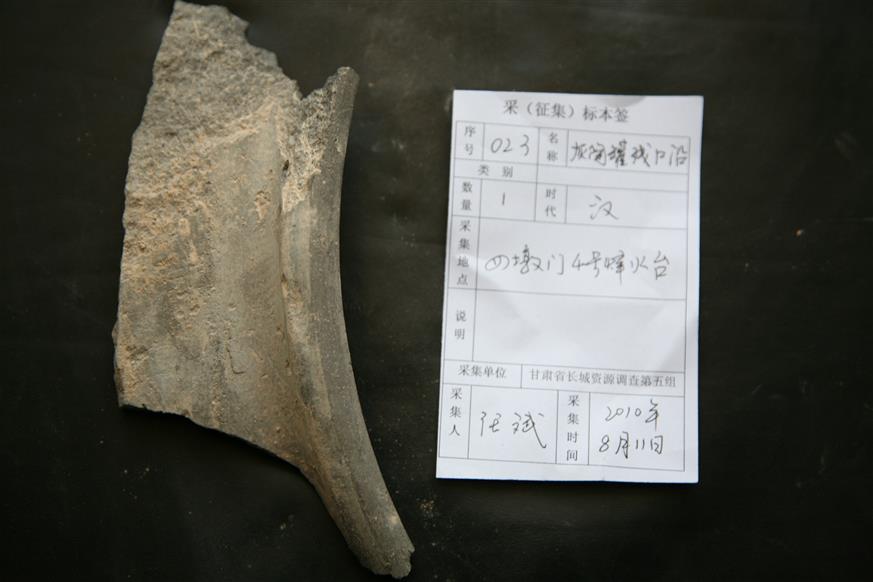 采（征集）标本签
序号 023 名称 灰陶罐残口沿
类别
数量 1 时代 汉
采集地点 四墩门4号烽火台
说明
采集单位 甘肃省长城资源调查第五组
采集人 张斌 采集时间 2010年8月11日